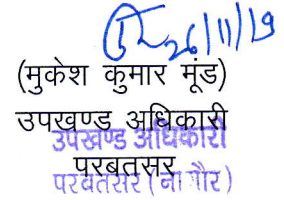 26/11/19
(मुकेश कुमार मूंड)
उपखण्ड अधिकारी
उपखण्ड अधिकारी
परबतसर
परबतसर (नागौर)